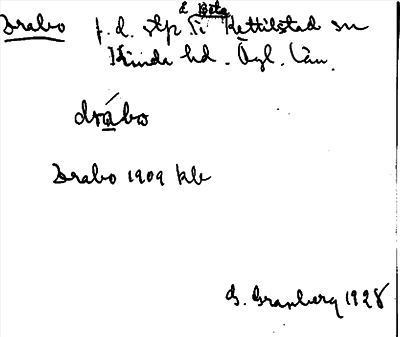 l. Böta
Drabo f.d. stp i Kettilstad sn
Kinda hd. Ögl. län.
drábo
Drabo 1909 kb
G. Granberg 1928